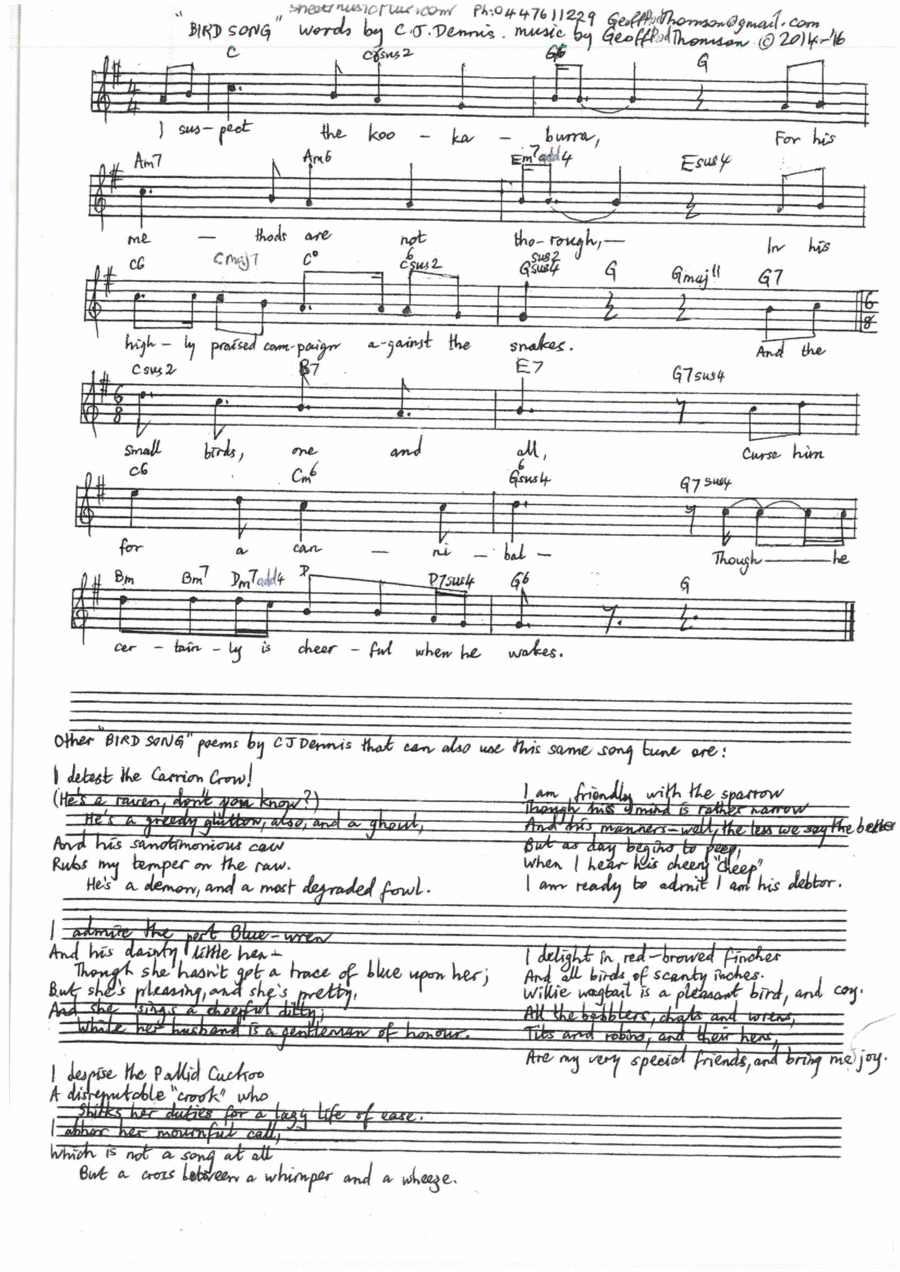 sheetmusicforuke.com Ph:0447611229 GeoffRodThomson@gmail.com
"BIRD SONG" words by C.J.Dennis. music by GeoffRodThomson © 2014-'16
C C6sus2 G6 G
I sus-pect the koo - ka - burra, For his
Am7 Am6 Em7add4 Esus4
me - thods are not tho-rough, In his
C6 Cmaj7 C° C6sus2 Gsus2sus4 G Gmaj11 G7
high-ly praised cam-paign a-gainst the snakes. And the
Csus2 B7 E7 G7sus4
small birds, one and all, Curse him
C6 Cm6 G6sus4 G7sus4
for a can - ni - bal - Though he
Bm Bm7 Dm7add4 D D7sus4 G6 G
cer - tain - ly is cheer - ful when he wakes.
Other "BIRD SONG" poems by CJ Dennis that can also use this same song tune are:
I detest the Carrion Crow!
(He's a raven, don't you know?)
He's a greedy glutton, also, and a ghoul,
And his sanctimonious caw
Rubs my temper on the raw.
He's a demon, and a most degraded fowl.
I am friendly with the sparrow
Though his mind is rather narrow
And his manners-well, the less we say the better
But as day begins to peep,
When I hear his cheery "cheep"
I am ready to admit I am his debtor.
I admire the pert Blue-wren
And his dainty little hen-
Though she hasn't got a trace of blue upon her;
But she's pleasing, and she's pretty,
And she sings a cheerful ditty;
While her husband is a gentleman of honour.
I delight in red-browed finches
And all birds of scanty inches.
Willie wagtail is a pleasant bird, and coy.
All the babblers, chats and wrens,
Tits and robins, and their hens,
Are my very special friends, and bring me joy.
I despise the Pallid Cuckoo
A disreputable "crook" who
Shirks her duties for a lazy life of ease.
I abhor her mournful call,
Which is not a song at all
But a cross between a whimper and a wheeze.